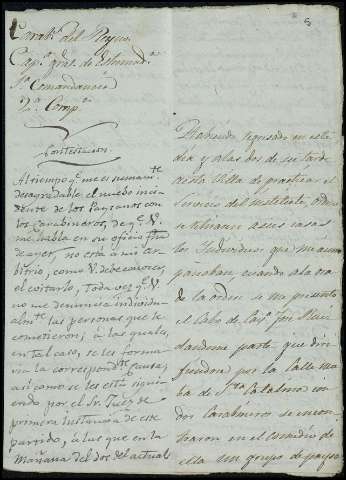 5
Carab.s del Reyno
Cap.a gral. de Estremad.a
1.a Comandancia
2.a Comp.a
Contestacion
Al tiempo q.e me es sumam.te
desagradable el nuevo inci
dente de los Paysanos con
los Carabineros, de q.e V.
me habla en su oficio fha
de ayer, no está a mi ar
bitrio, como V. debe conocer,
el evitarlo, toda vez q.e V.
no me denuncia individu
alm.te las personas que le
cometieron; à las quales,
en tal caso, se les forma
ria la correspond.te causa,
asi como se les está sigui
endo por el Sr. Juez de
primera instancia de este
partido, à los que en la
mañana del dos del actual
Habiendo regresado en este
dia y a las dos de su tarde
a esta Villa de practicar el
servicio del instituto, orden
se retirasen a sus casas
los Individuos que me acom
pañaban, cuando a la ora
de la orden se me presentó
el Cabo de Cav.a José Ruiz
dandome parte que diri
giendose por la Calle
de S.ta Catalina con
dos Carabineros se encon
traron en el comedio de
ella un grupo de paysa